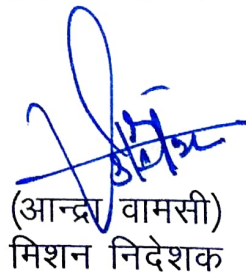 (आन्द्रा वामसी)
मिशन निदेशक